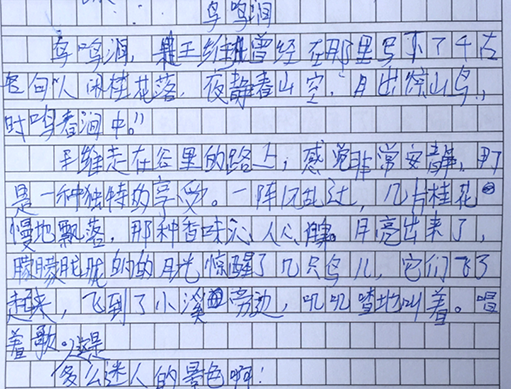 鸟鸣涧
鸟鸣涧,是王维曾经在那里写下了千古
名句"人闲桂花落,夜静春山空,月出惊山鸟,
时鸣春涧中。"
王维走在谷里的路上,感觉非常安静,
是一种独特的享受。一阵风吹过,几片桂花
慢地飘落,那种香味沁人心脾。月亮出来了,
朦朦胧胧的的月光惊醒了几只鸟儿,它们飞了
起来,飞到了小溪旁边,叽叽喳地叫着。唱
着歌。这是
多么迷人的景色啊!